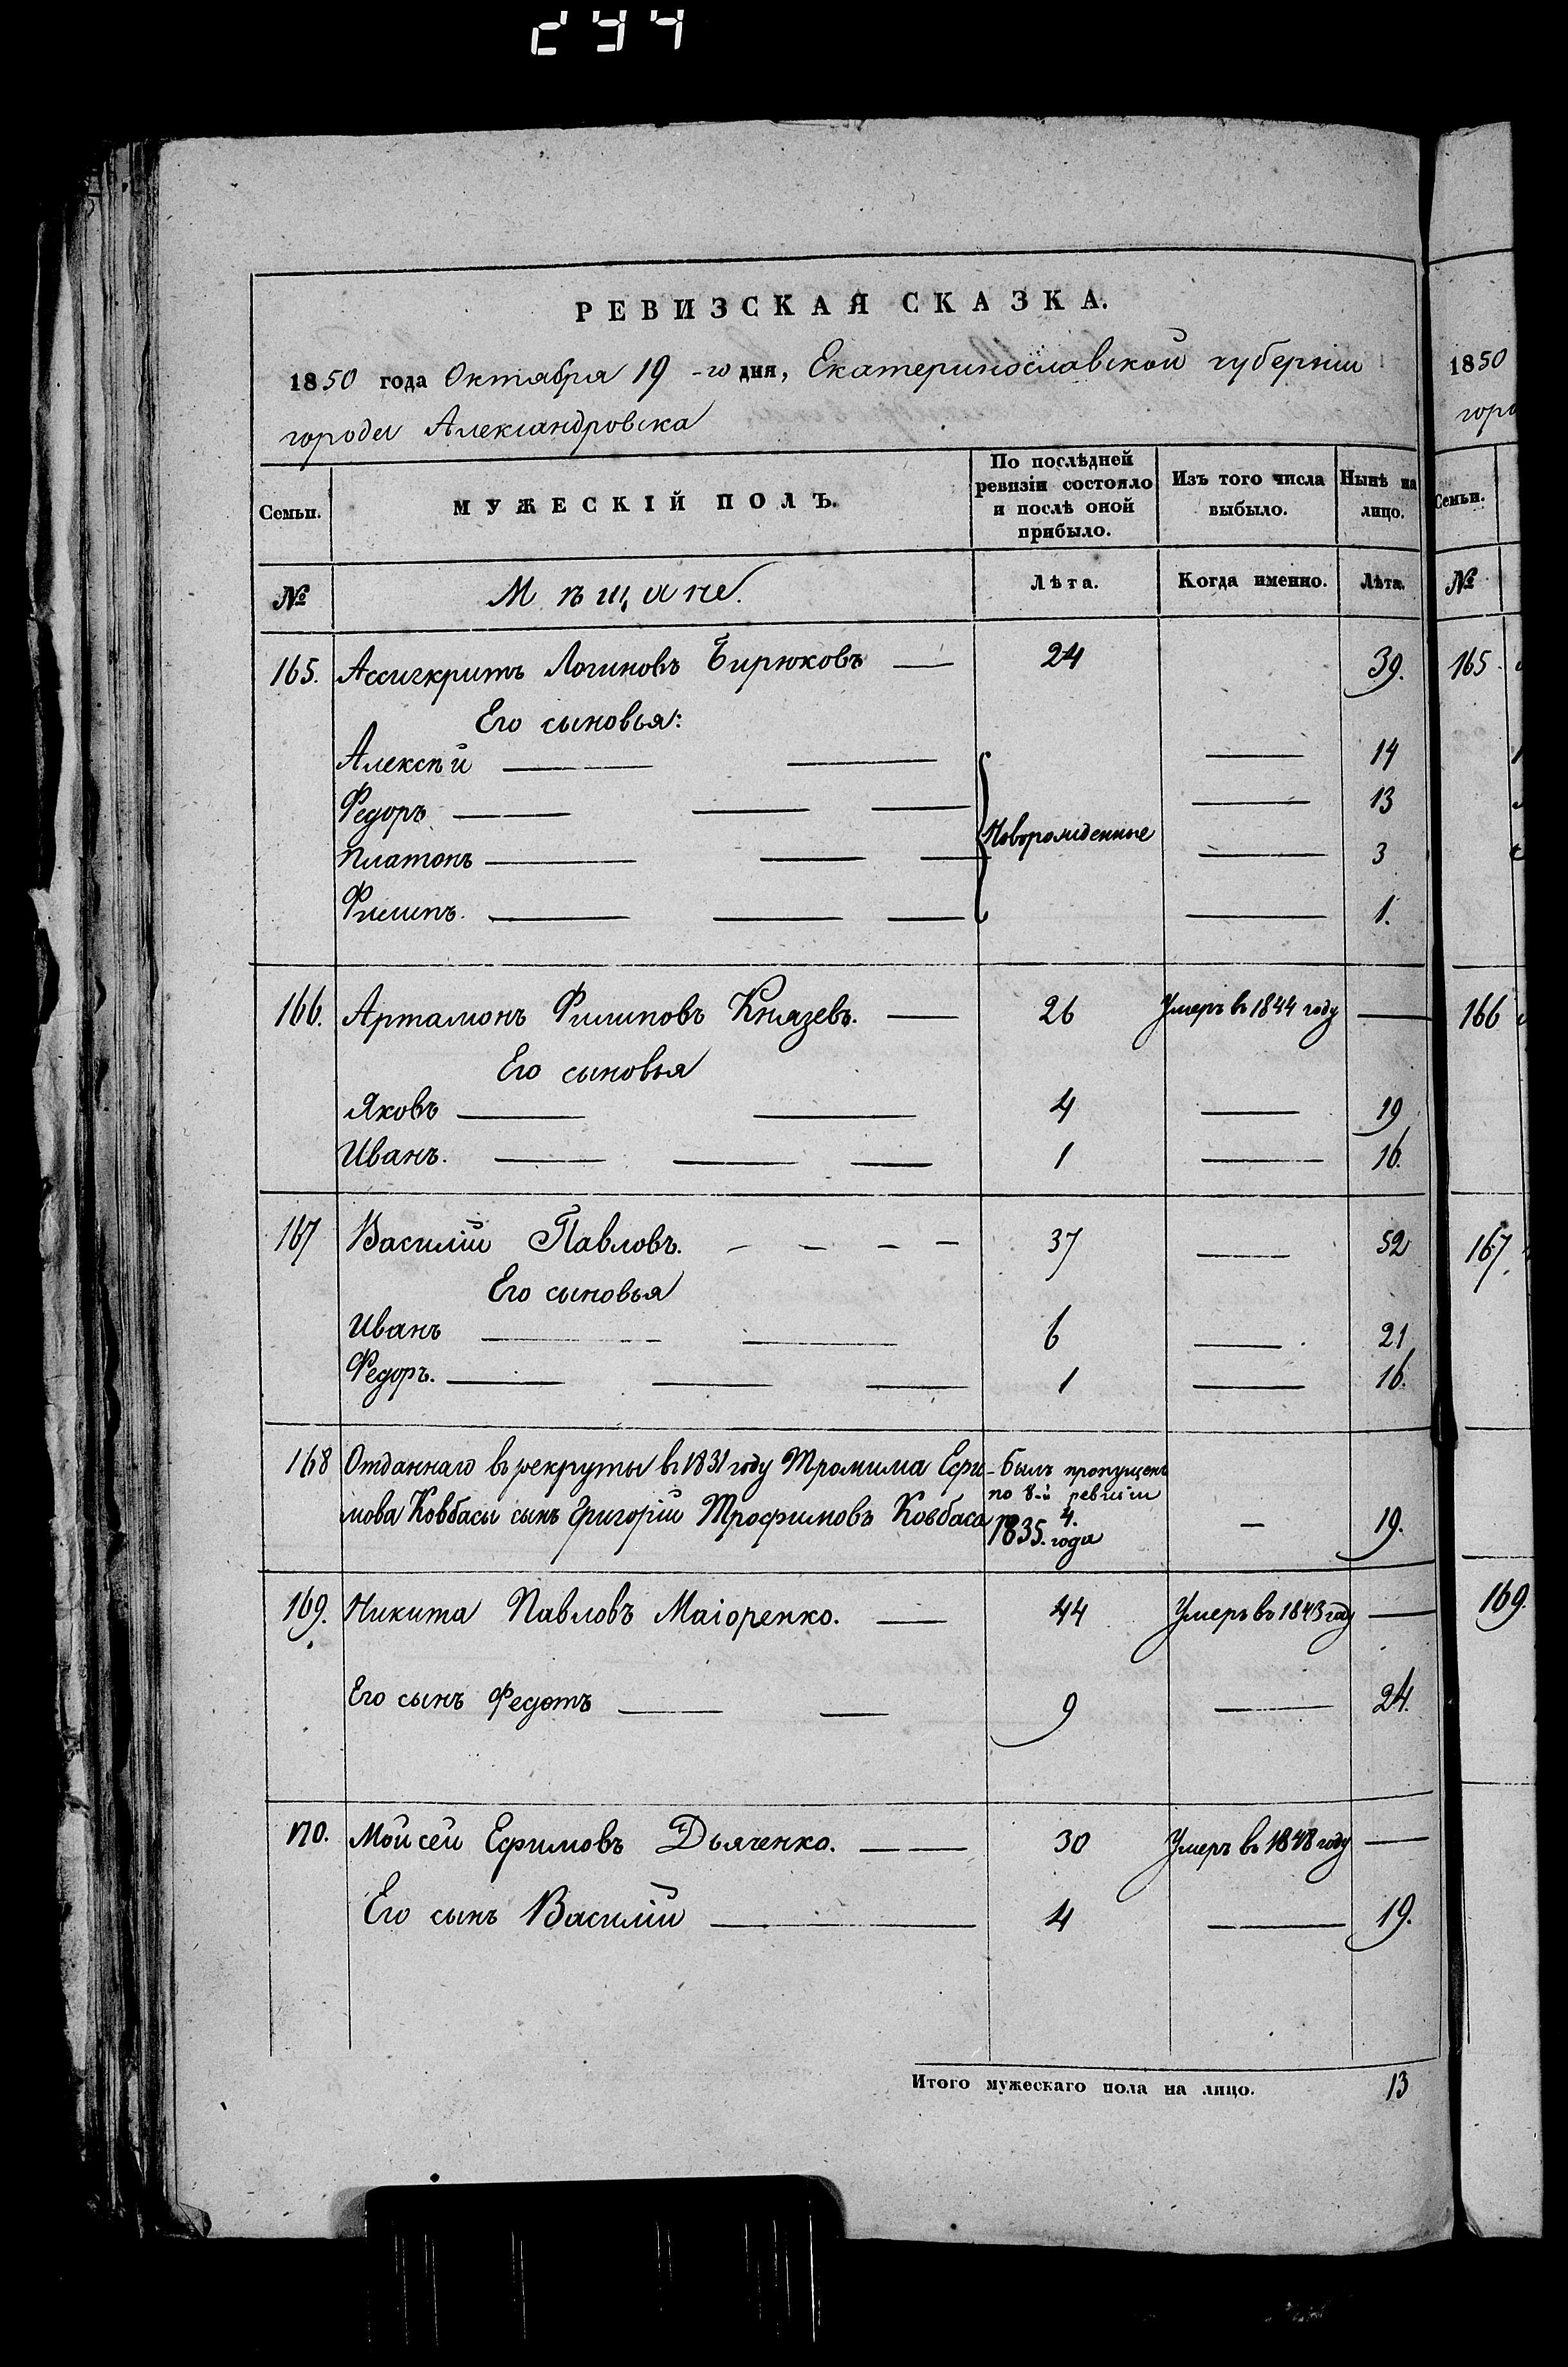 294
РЕВИЗСКАЯ СКАЗКА.
1850 года Октября 19 -го дня, Екатеринославской губернии
города Александровска
Семьи.
МУЖЕСКІЙ ПОЛЪ.
По послѣдней ревизіи состояло и послѣ оной прибыло.
Изъ того числа выбыло.
Нынѣ на лицо.
№ Мѣщане. Лѣта. Когда именно. Лѣта.
165. Ассигкритъ Логиновъ Бирюковъ — 24 39.
Его сыновья:
Алексѣй — — — 14
Федоръ — — — — 13
Новорожденные
Платонъ — — — — 3
Филипъ. — — — — 1.
166. Артамонъ Филиповъ Князевъ. — 26 Умеръ въ 1844 году —
Его сыновья
Яковъ — — 4 — 19
Иванъ. — — — 1 — 16.
167 Василій Павловъ. — — — — 37 — 52
Его сыновья
Иванъ — — 6 — 21
Федоръ. — — — 1 — 16.
168 Отданнаго въ рекруты в 1831 году Трофима Ефи- былъ пропущенъ
по 8-й ревизіи
мова Ковбасы сынъ Григорій Трофимовъ Ковбаса 4. — 19.
1835. года
169. Никита Павловъ Маіоренко. — 44 Умеръ въ 1843 году —
Его сынъ Федотъ — — 9 — 24.
170. Мойсей Ефимовъ Дьяченко. — — 30 Умеръ въ 1848 году —
Его сынъ Василій — 4 — 19.
Итого мужескаго пола на лицо. 13
1850
горо
Семьи.
№
165
166
167.
169.